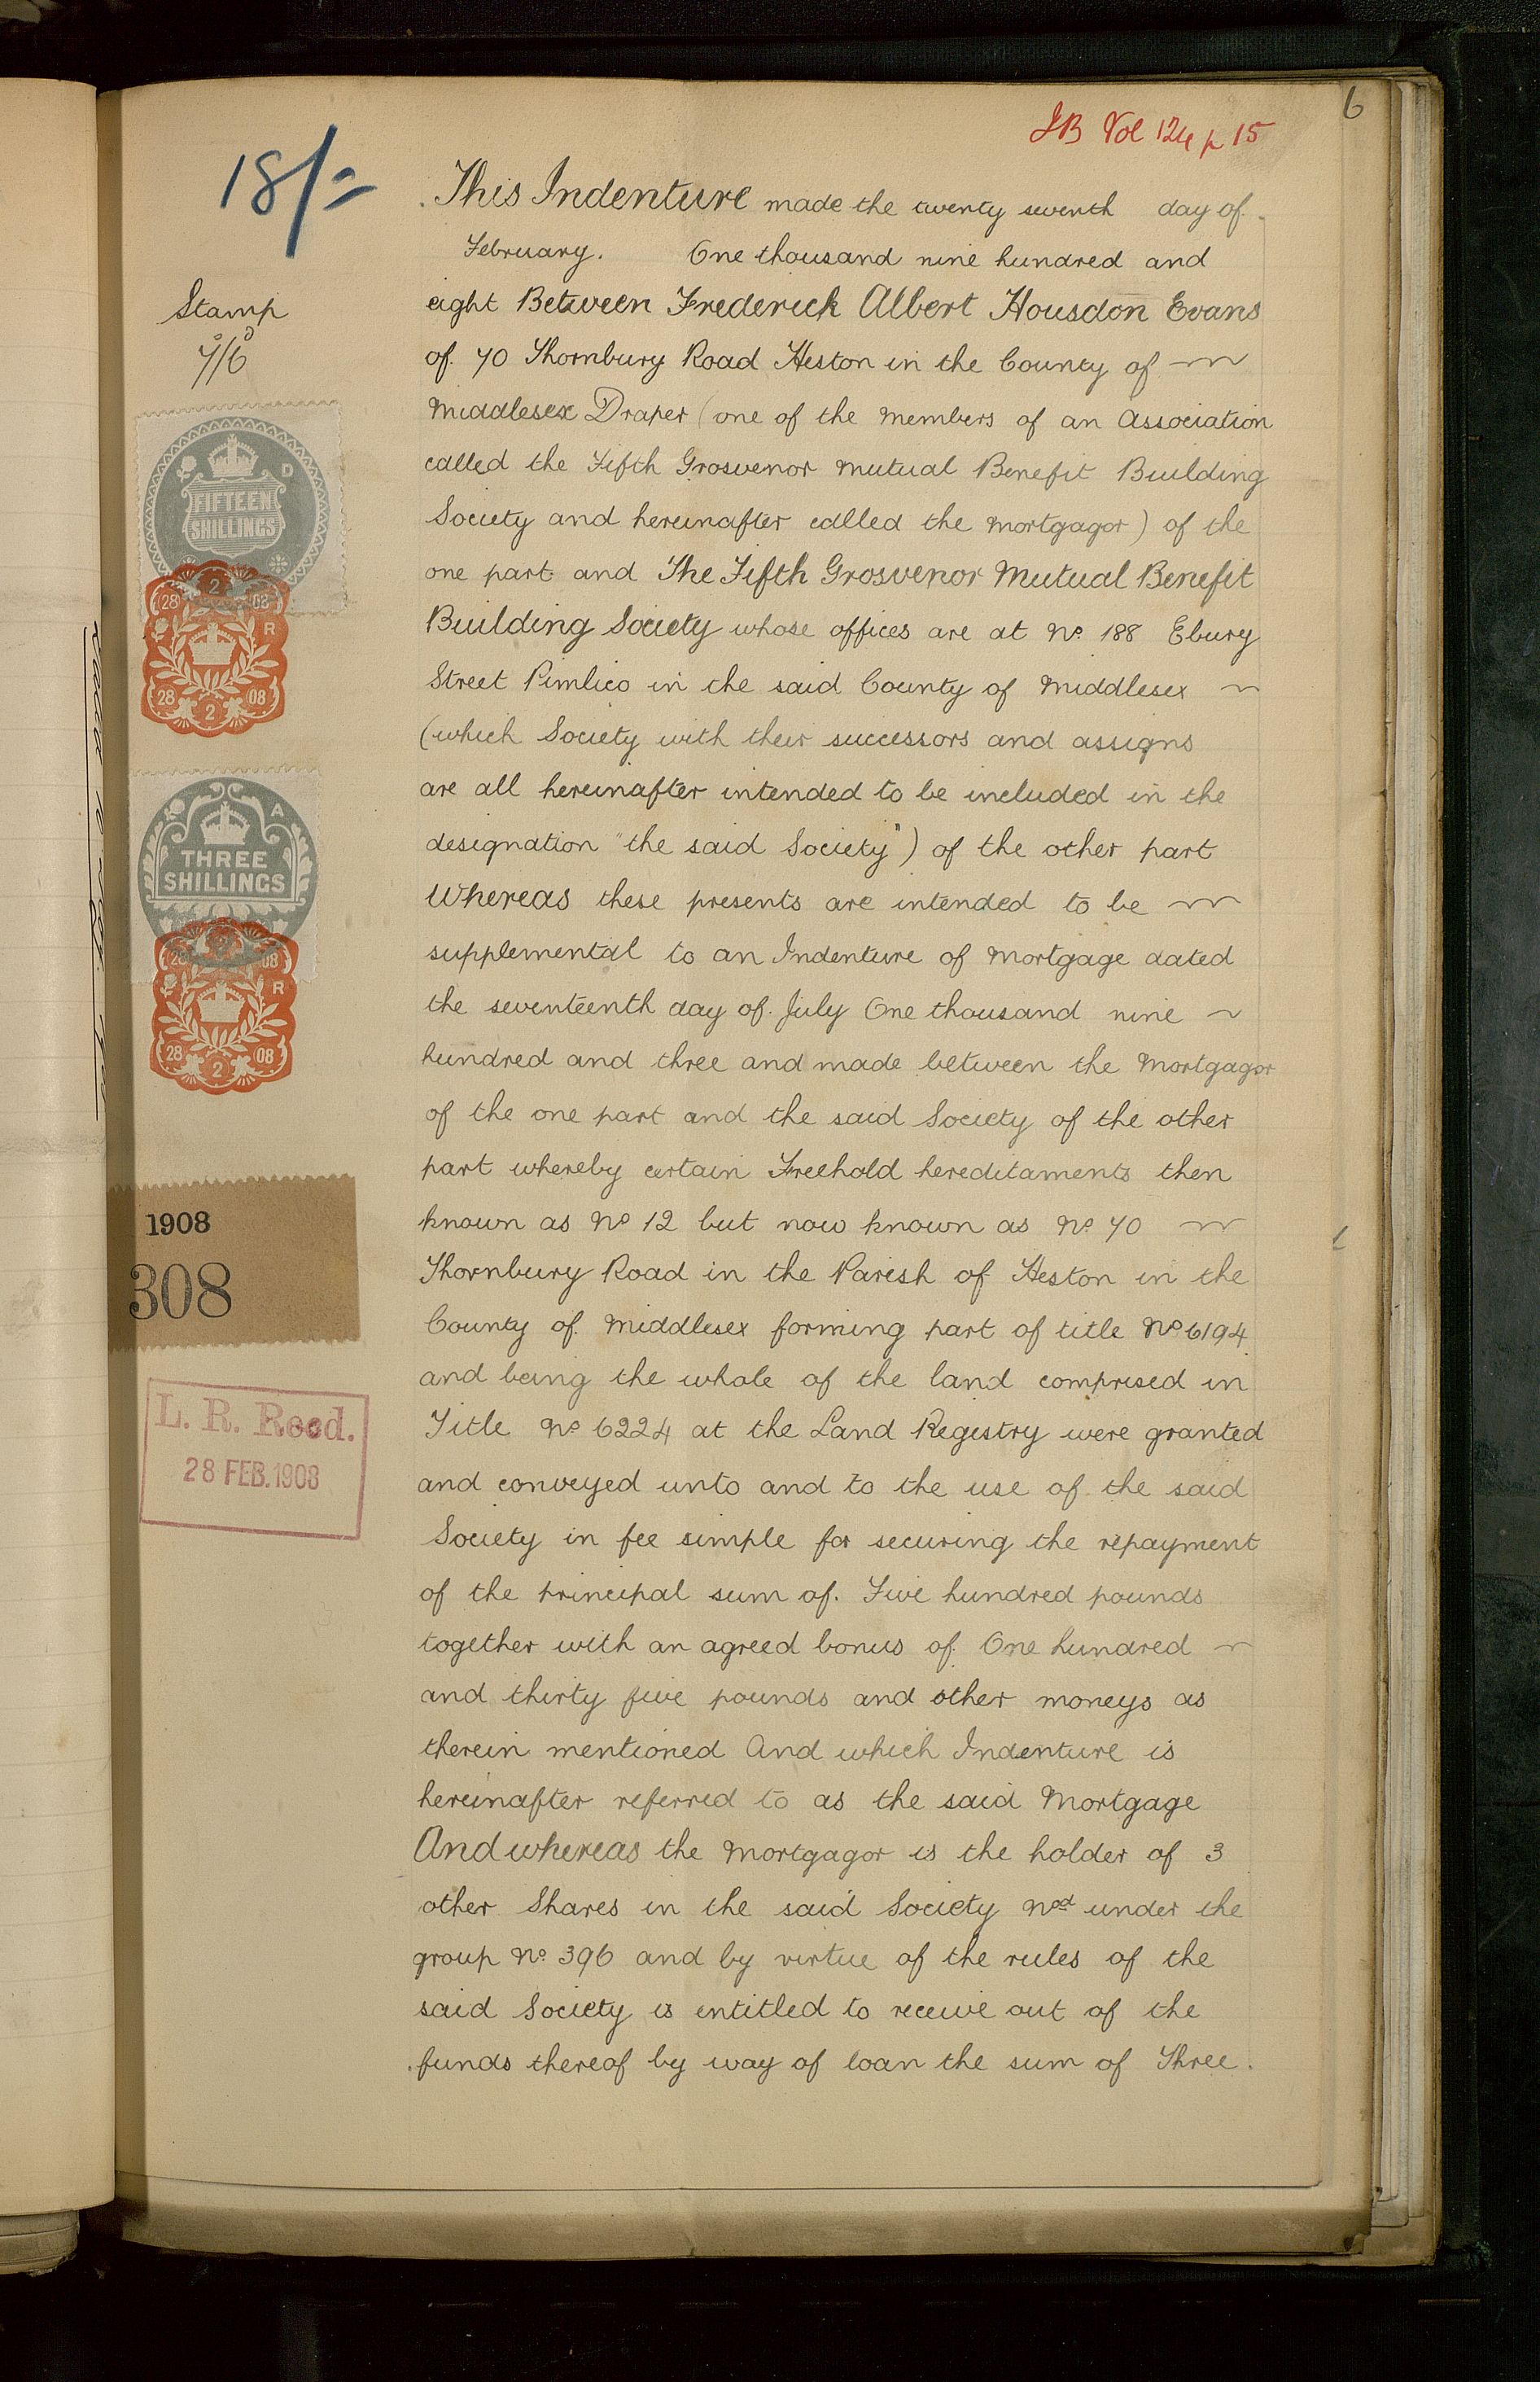 6
JB Vol 124 p 15
18/=
Stamp
7s/6d
FIFTEEN
SHILLINGS
D
28 2 08
R
28 2 08
A
THREE
SHILLINGS
28 2 08
R
28 2 08
1908
308
L. R. Recd.
28 FEB. 1908
This Indenture made the twenty seventh day of
February. One thousand nine hundred and
eight Between Frederick Albert Housdon Evans
of 70 Thornbury Road Heston in the County of
Middlesex Draper (one of the Members of an Association
called the Fifth Grosvenor Mutual Benefit Building
Society and hereinafter called the Mortgagor) of the
one part and The Fifth Grosvenor Mutual Benefit
Building Society whose offices are at No. 188 Ebury
Street Pimlico in the said County of Middlesex
(which Society with their successors and assigns
are all hereinafter intended to be included in the
designation "the said Society") of the other part
Whereas these presents are intended to be
supplemental to an Indenture of Mortgage dated
the seventeenth day of July One thousand nine
hundred and three and made between the Mortgagor
of the one part and the said Society of the other
part whereby certain Freehold hereditaments then
known as No 12 but now known as No. 70
Thornbury Road in the Parish of Heston in the
County of Middlesex forming part of title No 6194
and being the whole of the land comprised in
Title No 6224 at the Land Registry were granted
and conveyed unto and to the use of the said
Society in fee simple for securing the repayment
of the principal sum of. Five hundred pounds
together with an agreed bonus of One hundred
and thirty five pounds and other moneys as
therein mentioned And which Indenture is
hereinafter referred to as the said Mortgage
And whereas the Mortgagor is the holder of 3
other Shares in the said Society Nod under the
group No. 396 and by virtue of the rules of the
said Society is entitled to receive out of the
funds thereof by way of loan the sum of Three